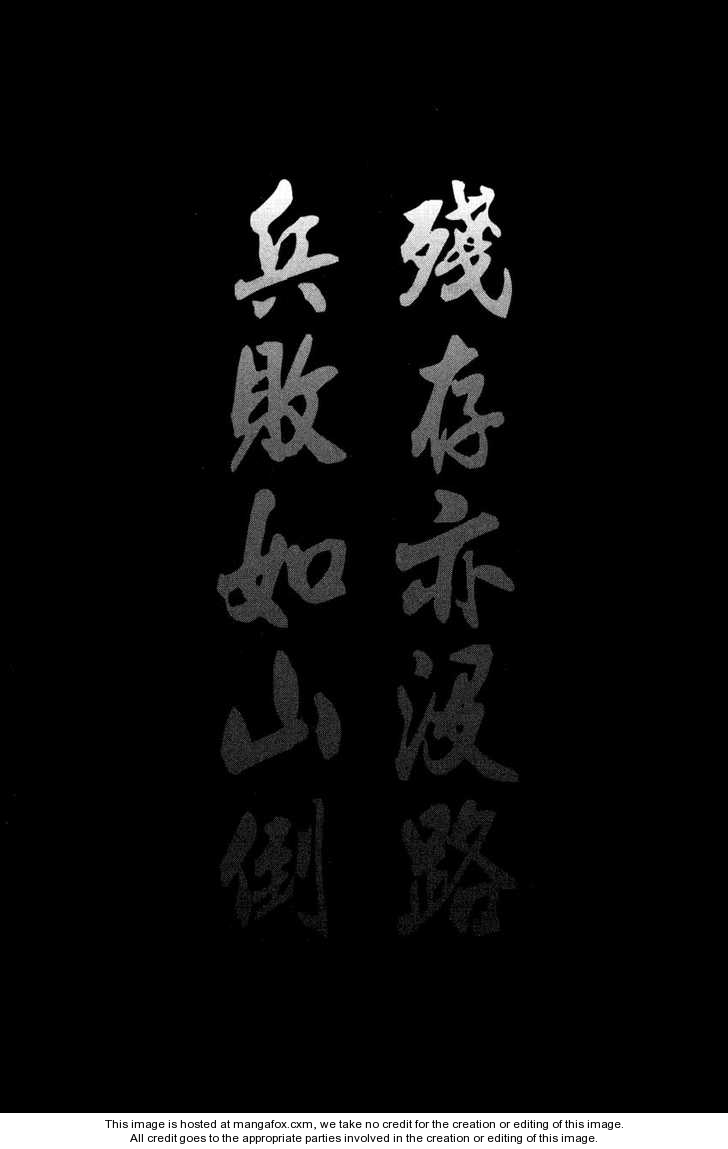 殘存亦沒路
兵敗如山倒
This image is hosted at mangafox.cxm, we take no credit for the creation or editing of this image.
All credit goes to the appropriate parties involved in the creation or editing of this image.